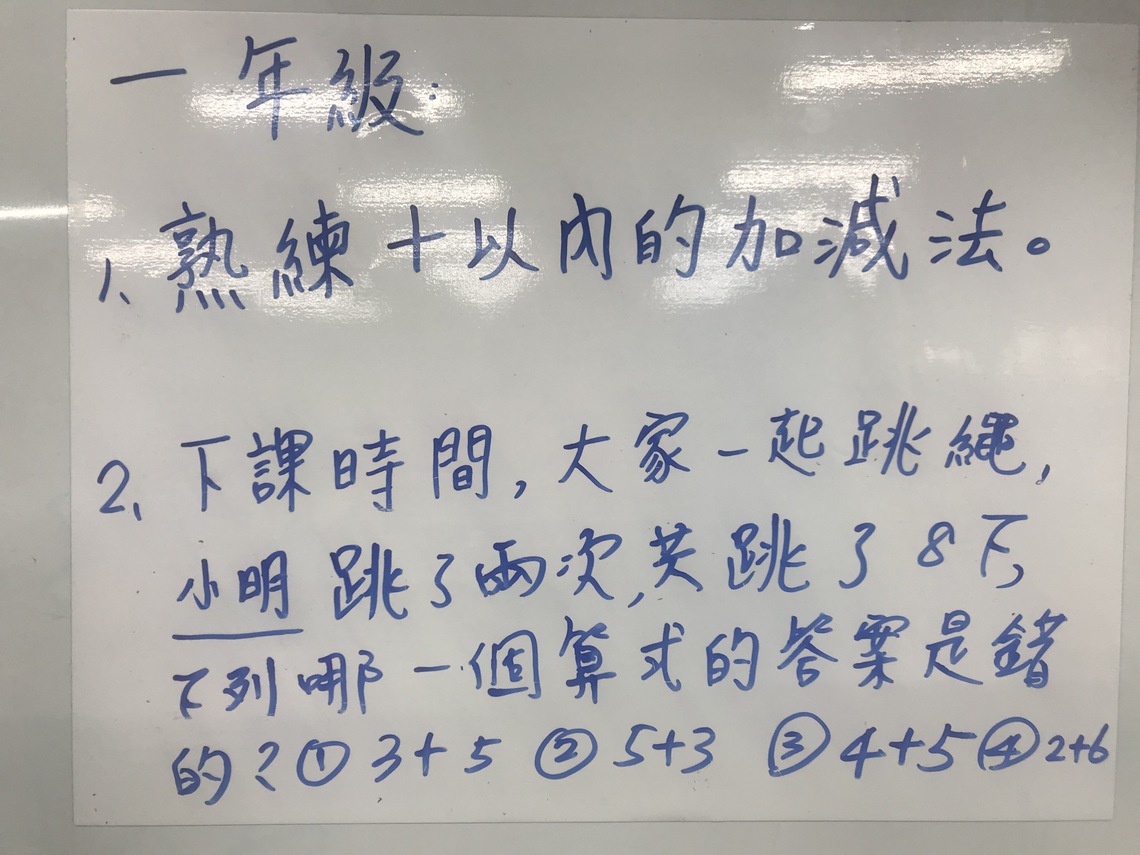 一年級:
1、熟練十以內的加減法。
2、下課時間,大家一起跳繩,
小明跳了兩次,共跳了8下,
下列哪一個算式的答案是錯
的?①3+5 ②5+3 ③4+5 ④2+6